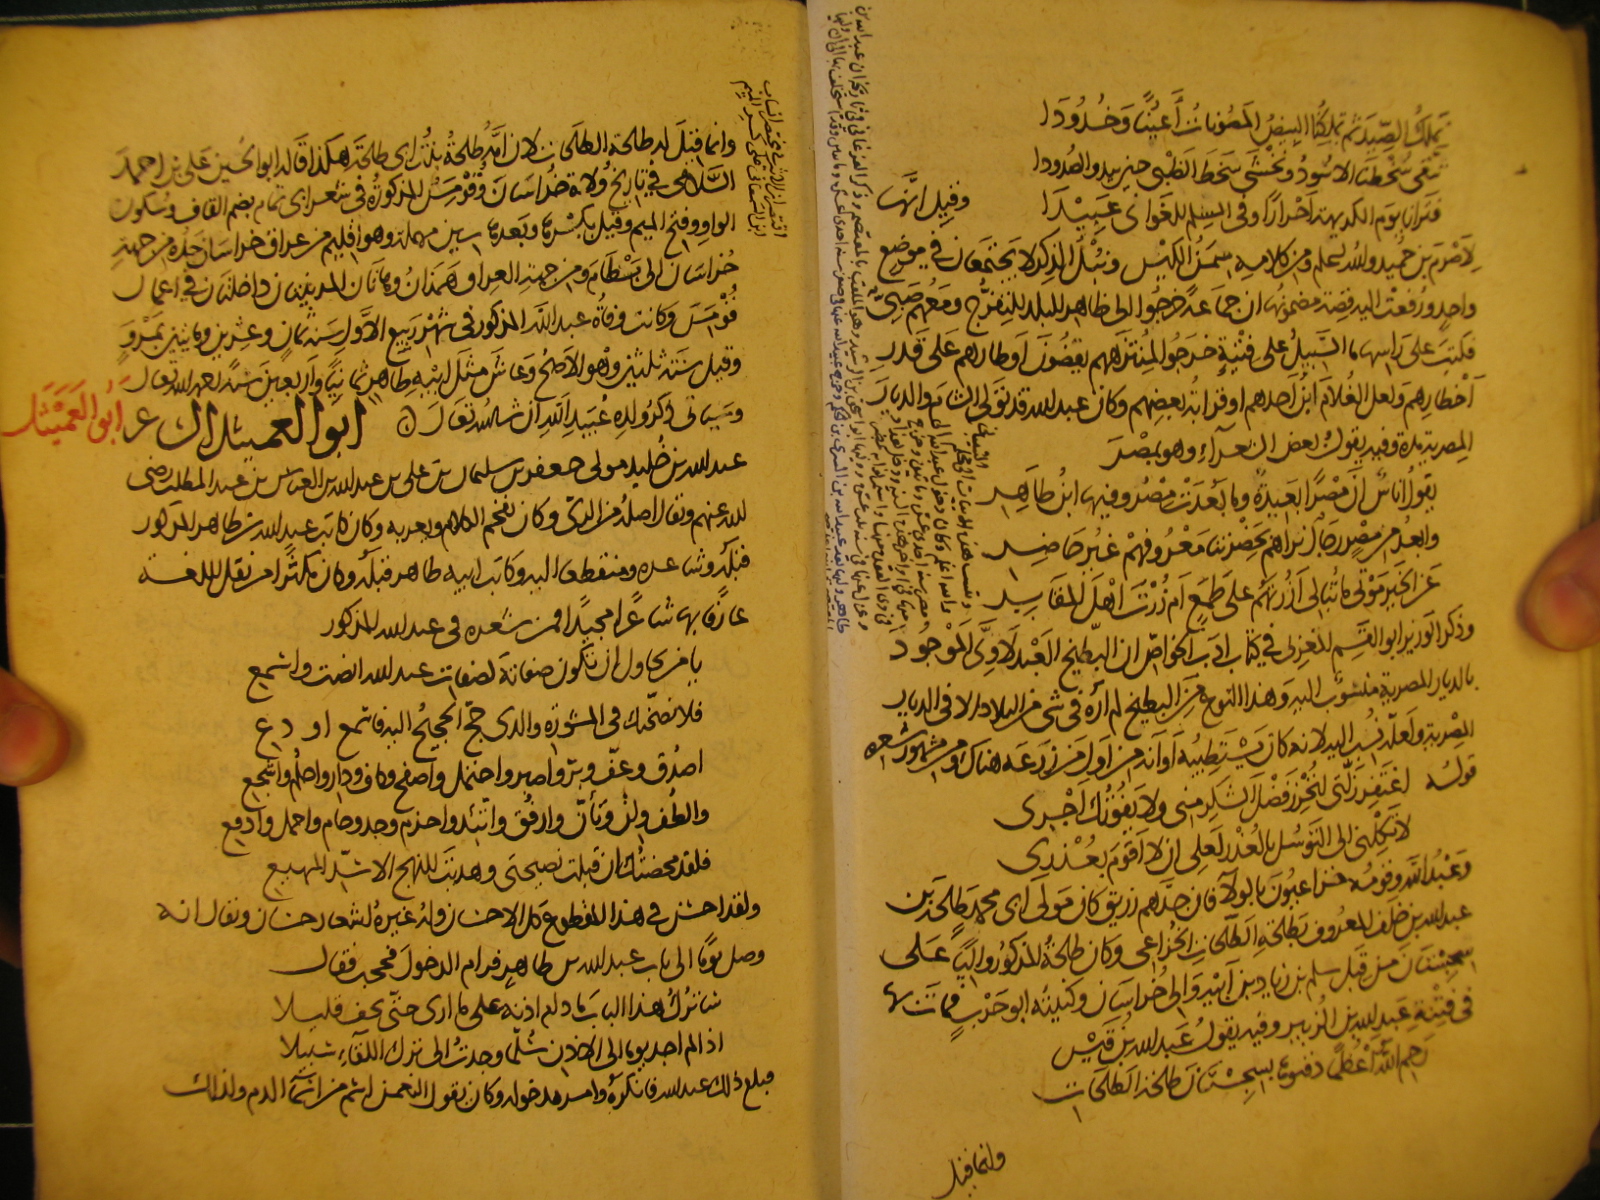 تملك الصيد ثم تملكنا البيض المصونات أعينا وخدودا
تتقي سخطنا الاسود ونخشى سخط الظبي حين يبدو الصدودا
فترانا يوم الكريهة أحرارا وفي السلم للغواني عبيدا
وقيل انها
لاصرم بن حميد والله تعلم ومن كلامه سمن الكيس ونبل الذكر لا يجتمعان في موضع
واحد ورفعت اليه قصة مضمونها ان جماعة خرجوا الى ظاهر البلد للتفرج ومعهم صبي
فكتب على راسها ما السبيل على فتية خرجوا لمنتزههم يقضون اوطارهم على قدر
أخطارهم ولعل الغلام ابن احدهم او قرابة بعضهم وكان عبد الله قد تولى الشام والديار
المصرية مدة وفيه يقول بعض الشعراء وهو بمصر
يقول اناس ان مصرا بعيدة وما بعدت مصر وفيها ابن طاهر
وابعد من مصر رجال تراهم بحضرتنا معروفهم غير حاضر
عن الخير موتى ما تبالي أزرتهم على طمع ام زرت اهل المقابر
وذكر الوزير ابو القسم المغربي في كتاب ادب الخواص ان البطيخ العبدلاوي الموجود
بالديار المصرية منسوب اليه وهذا النوع من البطيخ لم أره في شئ من البلاد الا في الديار
المصرية ولعله نسب اليه لانه كان يستطيبه او انه من اول من زرعه هناك ومن مشهور شعره
قوله اغتفر زلتي لتحرز فضل الشكر مني ولا يفوتك اجري
لا تكلني الى التوسل بالعذر لعلي ان لا اقوم بعذري
وعبد الله وقومه خزاعيون بالولاء فان جدهم زريق كان مولى ابي محمد طلحة بن
عبد الله بن خلف المعروف بطلحة الطلحات الخزاعي وكان طلحة المذكور واليا على
سجستان من قبل سلم بن زياد بن أبيه والي خراسان وكنيته ابو حرب فمات بها
في فتنة عبد الله بن الزبير وفيه يقول عبد الله بن قيس
رحم الله أعظما دفنوها بسجستان طلحة الطلحات
وانما قيل
وانما قيل له طلحة الطلحات لان امه طلحة بنت ابي طلحة هكذا قاله ابو الحسين علي بن احمد
السلامي في تاريخ ولاة خراسان وقومس المذكورة في شعر ابي تمام بضم القاف وسكون
الواو وفتح الميم وقيل بكسرها وبعدها سين مهملة وهو اقليم من عراق خراسان حده من جهة
خراسان الى بسطام ومن جهة العراق همذان وهاتان المدينتان داخلتان في اعمال
قومس وكانت وفاة عبد الله المذكور في شهر ربيع الاول سنة ثمان وعشرين ومائتين بمرو
وقيل سنة ثلثين وهو الاصح وعاش مثل ابيه طاهر ثمانيا وأربعين سنة رحمه الله تعالى
وسياتي ذكر ولده عبيد الله ان شاء الله تعالى
ابو العميثل
أبو العميثل
عبد الله بن خليد مولى جعفر بن سليمان بن علي بن عبد الله بن العباس بن عبد المطلب رضي
الله عنهم ويقال اصله من الري وكان يفخم الكلام ويعربه وكان كاتب عبد الله بن طاهر المذكور
قبله وشاعره ومنقطعا اليه وكاتب ابيه طاهر قبله وكان مكثرا من نقل اللغة
عارفا بها شاعرا مجيدا فمن شعره في عبد الله المذكور
يا من يحاول ان تكون صفاته كصفات عبد الله انصت واسمع
فلانصحنك في المشورة والذي حج الحجيج اليه فاسمع او دع
اصدق وعف وبر واصبر واحتمل واصفح وكاف ودار واحلم واشجع
والطف ولن وتأن وارفق واتئد واحزم وجد وحام واحمل وادفع
فلقد محضتك ان قبلت نصيحتي وهديت للنهج الاسد المهيع
ولقد احسن في هذا المقطوع كل الاحسان وله غيره اشعار حسان ويقال انه
وصل يوما الى باب عبد الله بن طاهر فرام الدخول فحجب فقال
ساترك هذا الباب ما دام اذنه على ما ارى حتى يخف قليلا
اذا لم اجد يوما الى الاذن سلما وجدت الى ترك اللقاء سبيلا
فبلغ ذلك عبد الله فانكره وامر بدخوله وكان يقول النعمن اسم من اسماء الدم ولذلك